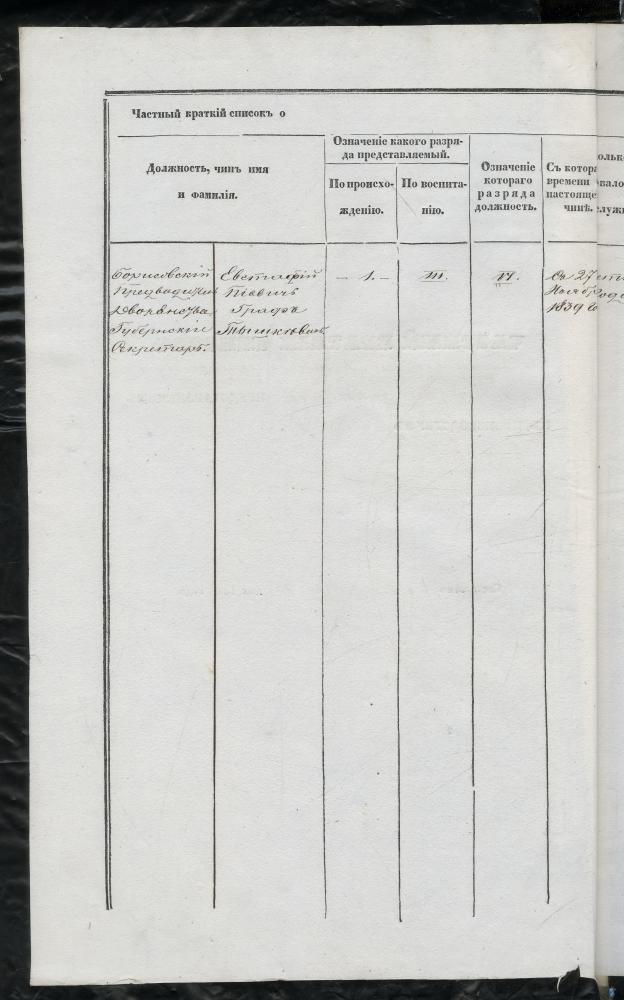 Частный краткій списокъ о
Должность, чинъ имя
и фамилія.
Означеніе какого разря-
да представляемый.
По происхо-
жденію.
По воспита-
нію.
Означеніе
котораго
разряда
должность.
Съ котора
времени
настояще
чинѣ.
Борисовскій
Предводитель
Дворянства
Губернскій
Секретарь.
Евстафій
Піевичъ
Графъ
Тышкевичъ
— I. —
III.
VI.
Съ 27
Ноябр
1839 го